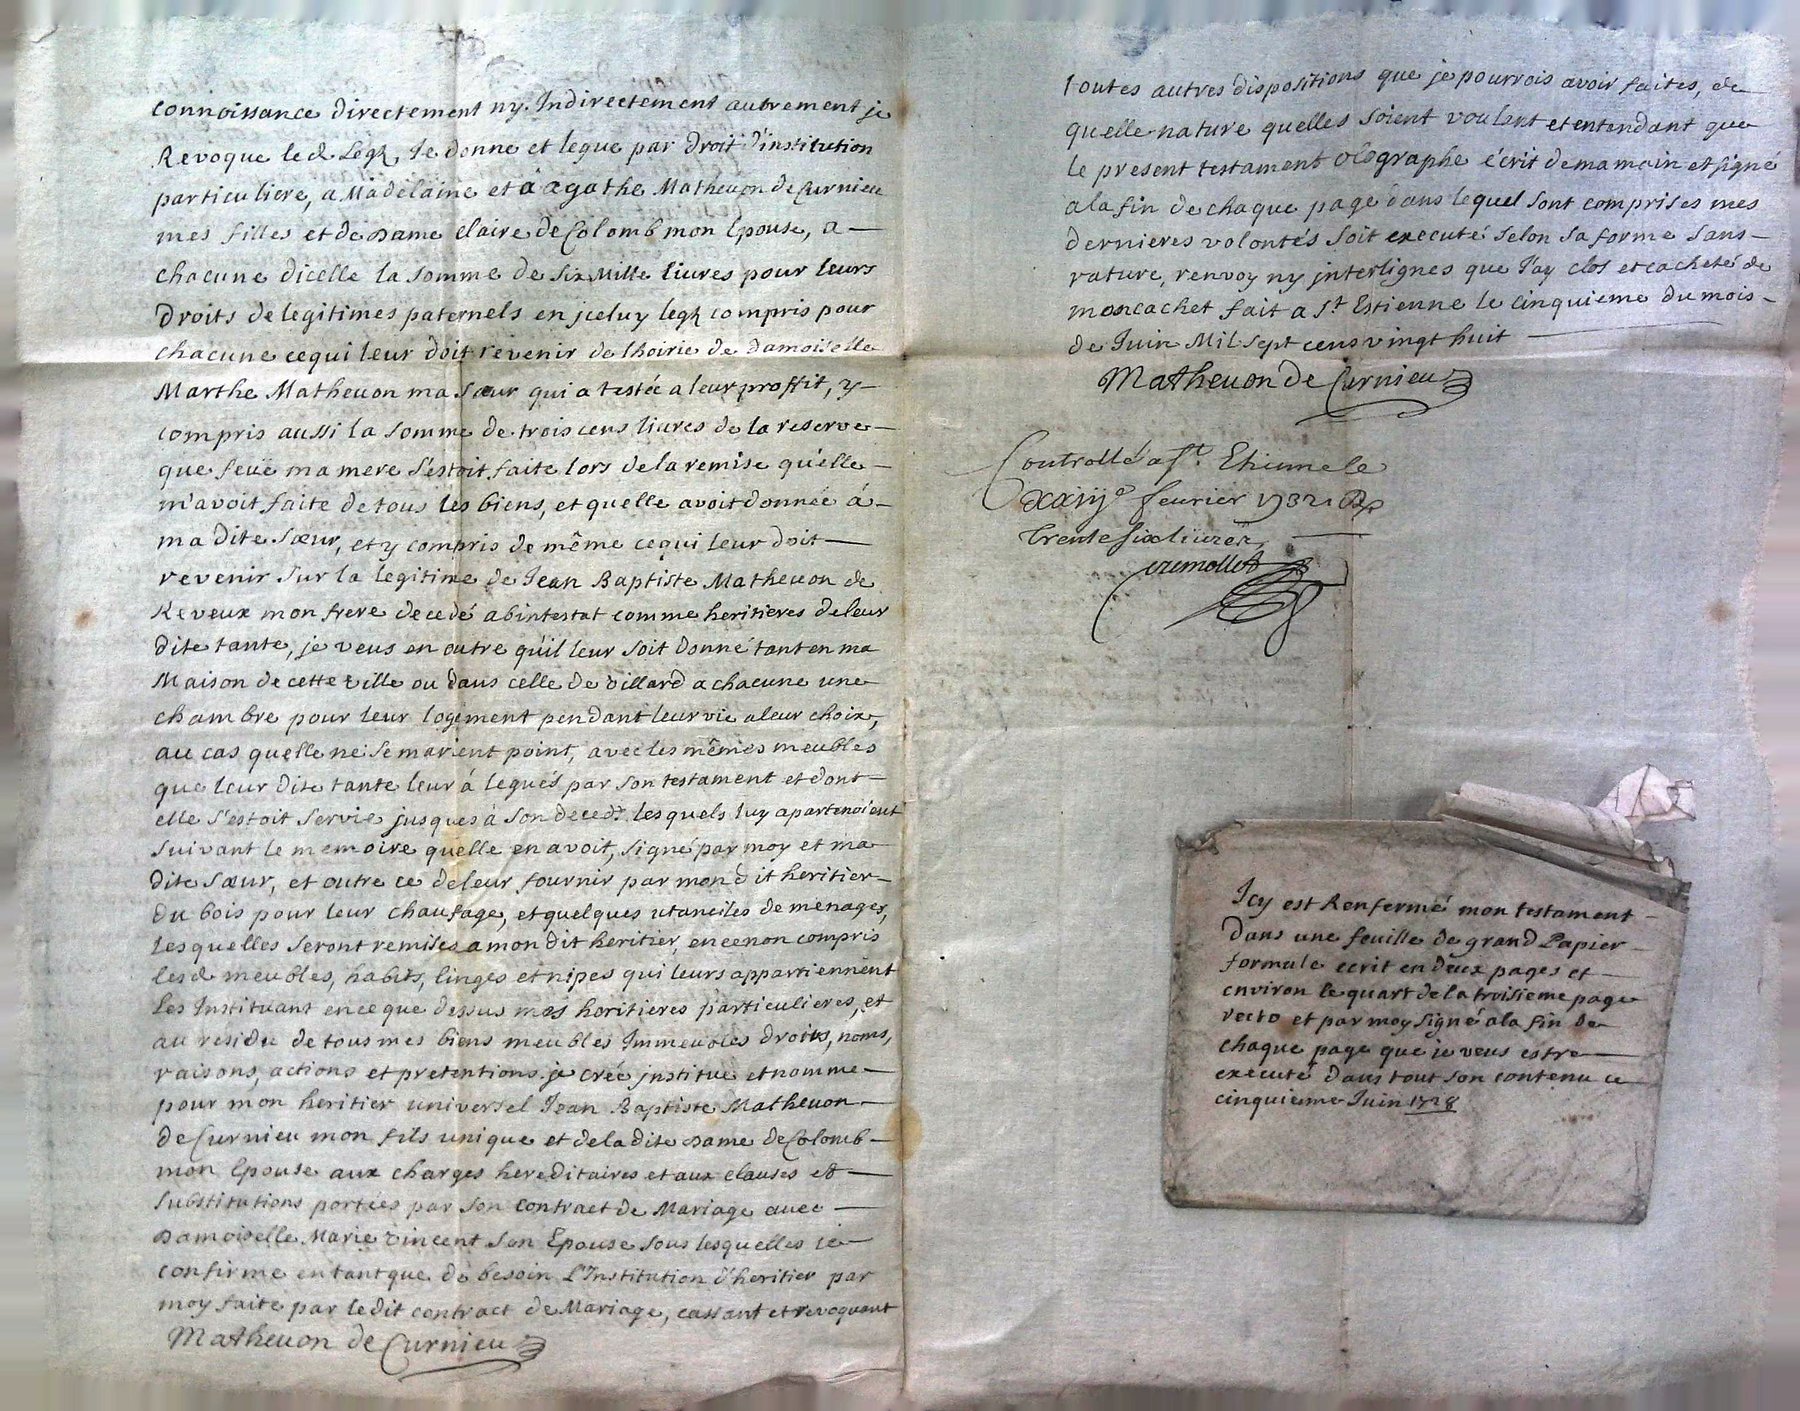 connoissance directement ny Indirectement autrement je
Revoque led. Legz, Je donne et legue par droit d'institution
particuliere, a Madelaine et à agathe Matheuon de Curnieu
mes filles et de Dame claire de Colomb mon Epouse, a
chacune dicelle la somme de six Mille livres pour leurs
droits de legitimes paternels en jceluy legz compris pour
chacune ce qui leur doit revenir de lhoirie de damoiselle
Marthe Matheuon ma sœur qui a testée a leur proffit, y
compris aussi la somme de trois cens livres de la reserve
que feuë ma mere s'estoit faite lors de la remise qu'elle
m'avoit faite de tous les biens, et quelle avoit donnée à
ma dite sœur, et y compris de même ce qui leur doit
revenir sur la legitime de Jean Baptiste Matheuon de
Reveux mon frere decedé abintestat comme heritieres de leur
dite tante, je veus en outre qu'il leur soit donné tant en ma
Maison de cette ville ou dans celle de villard a chacune une
chambre pour leur logement pendant leur vie a leur choix,
au cas quelle ne se marient point, avec les mêmes meubles
que leur dite tante leur à legués par son testament et dont
elle s'estoit servie jusques à son deced. lesquels luy apartenoient
suivant le memoire quelle en avoit, signé par moy et ma
dite sœur, et outre ce de leur fournir par mon dit heritier
du bois pour leur chaufage, et quelques utanciles de menages,
lesquelles seront remises a mon dit heritier, en ce non compris
lesd. meubles, habits, linges et nipes qui leurs appartiennent
Les Instituant en ce que dessus mes heritieres particulieres, et
au residu de tous mes biens meubles Immeubles droits, noms,
raisons, actions et pretentions je crée jnstitue et nomme
pour mon heritier universel Jean Baptiste Matheuon
de Curnieu mon fils unique et de la dite Dame de Colomb
mon Epouse aux charges hereditaires et aux clauses et
substitutions portées par son contract de Mariage avec
Damoiselle Marie vincent son Epouse sous lesquelles je
confirme en tant que de besoin L'Institution d'heritier par
moy faite par le dit contract de Mariage, cassant et revoquant
Matheuon de Curnieu
toutes autres dispositions que je pourrois avoir faites, de
quelle nature quelles soient voulant et entendant que
le present testament olographe écrit de ma main et signé
a la fin de chaque page dans lequel sont comprises mes
dernieres volontés soit executé selon sa forme sans
rature, renvoy ny jnterlignes que J'ay clos et cacheté de
mon cachet fait a St. Estienne le cinquieme du mois
de Juin Mil sept cens vingt huit
Matheuon de Curnieu
Controllé a St. Etienne le
xxiije feurier 1732
trente six liures
Icy est Renfermé mon testament
dans une feuille de grand Papier
formule ecrit en deux pages et
environ le quart de la troisieme page
recto et par moy signé a la fin de
chaque page que je veus estre
executé dans tout son contenu ce
cinquieme Juin 1728